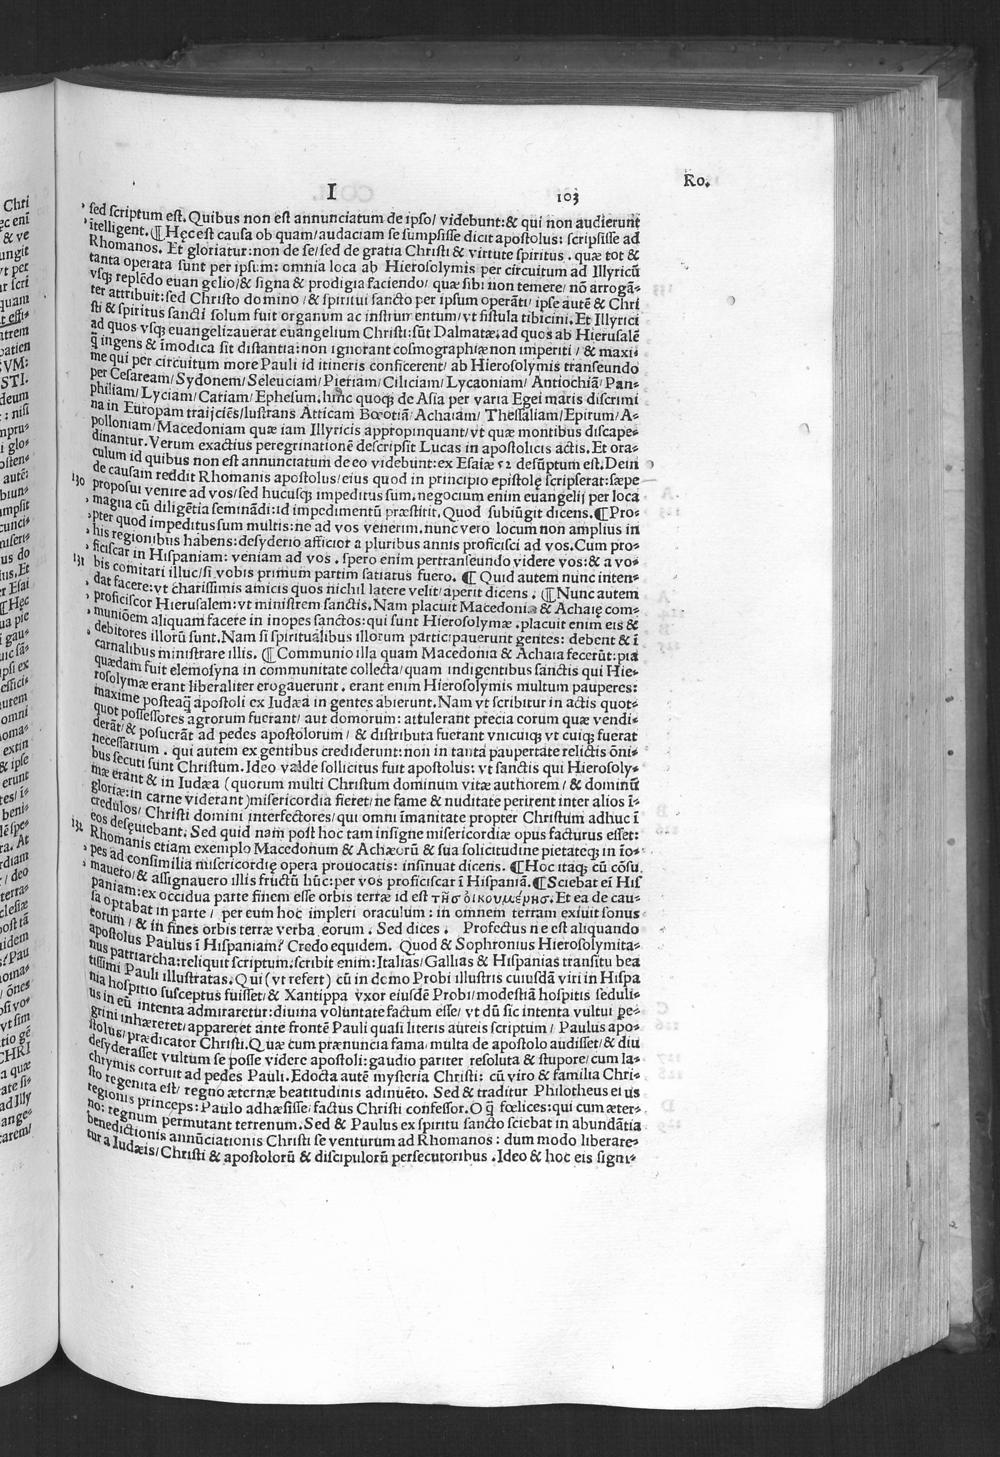 I 103 Ro.
sed scriptum est. Quibus non est annunciatum de ipso/ videbunt:& qui non audierunt
ītelligent. ¶ Hęc est causa ob quam/audaciam se sumpsisse dicit apostolus: scripsisse ad
Rhomanos. Et gloriatur: non de se/sed de gratia Christi & virtute spiritus . quæ tot &
tanta operata sunt per ipsum: omnia loca ab Hierosolymis per circuitum ad Illyricū
vsqʒ replēdo euan gelio/& signa & prodigia faciendo/ quæ sibi non temere/ nō arrogā⸗
ter attribuit: sed Christo domino /& spiritui sancto per ipsum operāti/ ipse autē & Chri
sti & spiritus sancti solum fuit organum ac instrumentum/vt fistula tibicini. Et Illyrici
ad quos vsqʒ euangelizauerat euangelium Christi: sūt Dalmatæ. ad quos ab Hierusalē
q̄ ingens & īmodica sit distantia: non ignorant cosmographiæ non imperiti / & maxi⸗
me qui per circuitum more Pauli id itineris conficerent/ ab Hierosolymis transeundo
per Cesaream/Sydonem/Seleuciam/Pieriam/Ciliciam/Lycaoniam/ Antiochiā/ Pan⸗
philiam/Lyciam/Catiam/Ephesum. hinc quoqʒ de Asia per varia Egei maris discrimi
na in Europam traijciēs/lustrans Atticam Bœotiā/Achaiam/ Thessaliam/Epirum/A⸗
polloniam/Macedoniam quæ iam Illyricis appropinquant/vt quæ montibus discape⸗
dinantur. Verum exactius peregrinationē descripsit Lucas in apostolicis actis. Et ora⸗
culum id quibus non est annunciatum de eo videbunt: ex Esaiæ 52 desūptum est. Dein
de causam reddit Rhomanis apostolus/eius quod in principio epistolę scripserat: sæpe
130 proposui venire ad vos/sed hucusqʒ impeditus sum. negocium enim euangelij per loca
magna cū diligētia seminādi: id impedimentū præstitit. Quod subiūgit dicens. ¶ Pro⸗
pter quod impeditus sum multis: ne ad vos venerim. nunc vero locum non amplius in
his regionibus habens: desyderio afficior a pluribus annis proficisci ad vos. Cum pro⸗
ficiscar in Hispaniam: veniam ad vos . spero enim pertranseundo videre vos: & a vo⸗
131 bis comitari illuc/si vobis primum partim satiatus fuero. ¶ Quid autem nunc inten⸗
dat facere: vt charissimis amicis quos nichil latere velit/aperit dicens . ¶ Nunc autem
proficiscor Hierusalem: vt ministrem sanctis. Nam placuit Macedonia & Achaię com⸗
muniōem aliquam facere in inopes sanctos: qui sunt Hierosolymæ . placuit enim eis &
debitores illorū sunt. Nam si spiritualibus illorum participauerunt gentes: debent & ī
carnalibus ministrare illis. ¶ Communio illa quam Macedonia & Achaia fecerūt: pia
quædam fuit elemosyna in communitate collecta/quam indigentibus sanctis qui Hie⸗
rosolymæ erant liberaliter erogauerunt . erant enim Hierosolymis multum pauperes:
maxime posteaq̄ apostoli ex Iudæa in gentes abierunt. Nam vt scribitur in actis quot⸗
quot possessores agrorum fuerant/ aut domorum: attulerant precia eorum quæ vendi⸗
derāt/& posucrāt ad pedes apostolorum / & distributa fuerant vnicuiqʒ vt cuiqʒ fuerat
necessarium . qui autem ex gentibus crediderunt: non in tanta paupertate relictis ōni⸗
bus secuti sunt Christum. Ideo valde sollicitus fuit apostolus: vt sanctis qui Hierosoly⸗
mæ erant & in Iudæa (quorum multi Christum dominum vitæ authorem / & dominū
gloriæ: in carne viderant) misericordia fieret/ ne fame & nuditate perirent inter alios ī⸗
credulos/ Christi domini interfectores/qui omni īmanitate propter Christum adhuc ī
eos desęuiebant. Sed quid nam post hoc tam insigne misericordiæ opus facturus esset:
132 Rhomanis etiam exemplo Macedonum & Achæorū & sua solicitudine pietateqʒ in īo⸗
pes ad consimilia misericordię opera prouocatis: insinuat dicens. ¶ Hoc itaqʒ cū cōsū
mauero/& assignauero illis fructū hūc: per vos proficiscar ī Hispaniā. ¶ Sciebat eī His
paniam: ex occidua parte finem esse orbis terræ id est τῆσ ὀικουμένησ. Et ea de cau⸗
sa optabat in parte / per eum hoc impleri oraculum : in omnem terram exiuit sonus
eorum / & in fines orbis terræ verba eorum . Sed dices . Profectus ne est aliquando
apostolus Paulus ī Hispaniam? Credo equidem. Quod & Sophronius Hierosolymita⸗
nus patriarcha: reliquit scriptum. scribit enim: Italias/Gallias & Hispanias transitu bea
tissimi Pauli illustratas. Qui (vt refert) cū in demo Probi illustris cuiusdā viri in Hispa
nia hospitio susceptus fuisset/ & Xantippa vxor eiusdē Probi/modestiā hospitis seduli⸗
us in eū intenta admiraretur: diuina voluntate factum esse/ vt dū sic intenta vultui pe⸗
grini inhæreret/appareret ante frontē Pauli quasi literis aureis scriptum / Paulus apo⸗
stolus/prædicator Christi. Quæ cum prænuncia fama multa de apostolo audisset/& diu
desyderasset vultum se posse videre apostoli: gaudio pariter resoluta & stupore/cum la⸗
chrymis corruit ad pedes Pauli. Edocta autē mysteria Christi: cū viro & familia Chri⸗
sto regenita est/ regno æternæ beatitudinis adinuēto. Sed & traditur Philotheus ei us
regionis princeps: Paulo adhæsisse/factus Christi confessor. O q̄ fœlices: qui cum æter⸗
no: regnum permutant terrenum. Sed & Paulus ex spiritu sancto sciebat in abundātia
benedictionis annūciationis Christi se venturum ad Rhomanos : dum modo liberare⸗
tur a Iudæis/Christi & apostolorū & discipulorū persecutoribus . Ideo & hoc eis signi⸗